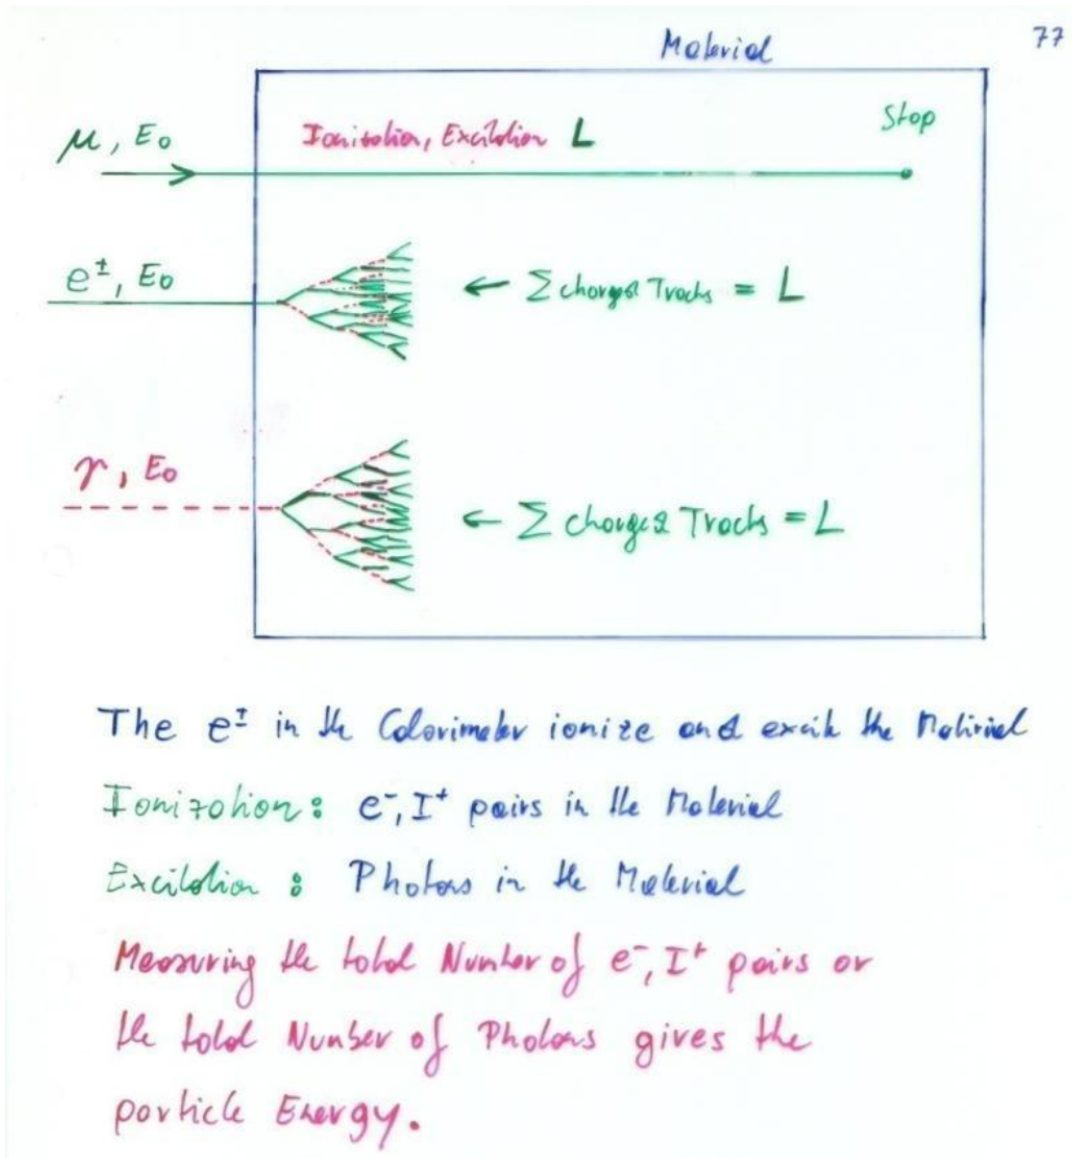 Material
77
μ, E₀
Ionization, Excitation L
Stop
e±, E₀
← Σ charged Tracks = L
γ, E₀
← Σ charged Tracks = L
The e± in the Calorimeter ionize and excite the Material
Ionization: e⁻, I⁺ pairs in the Material
Excitation: Photons in the Material
Measuring the total Number of e⁻, I⁺ pairs or
the total Number of Photons gives the
particle Energy.